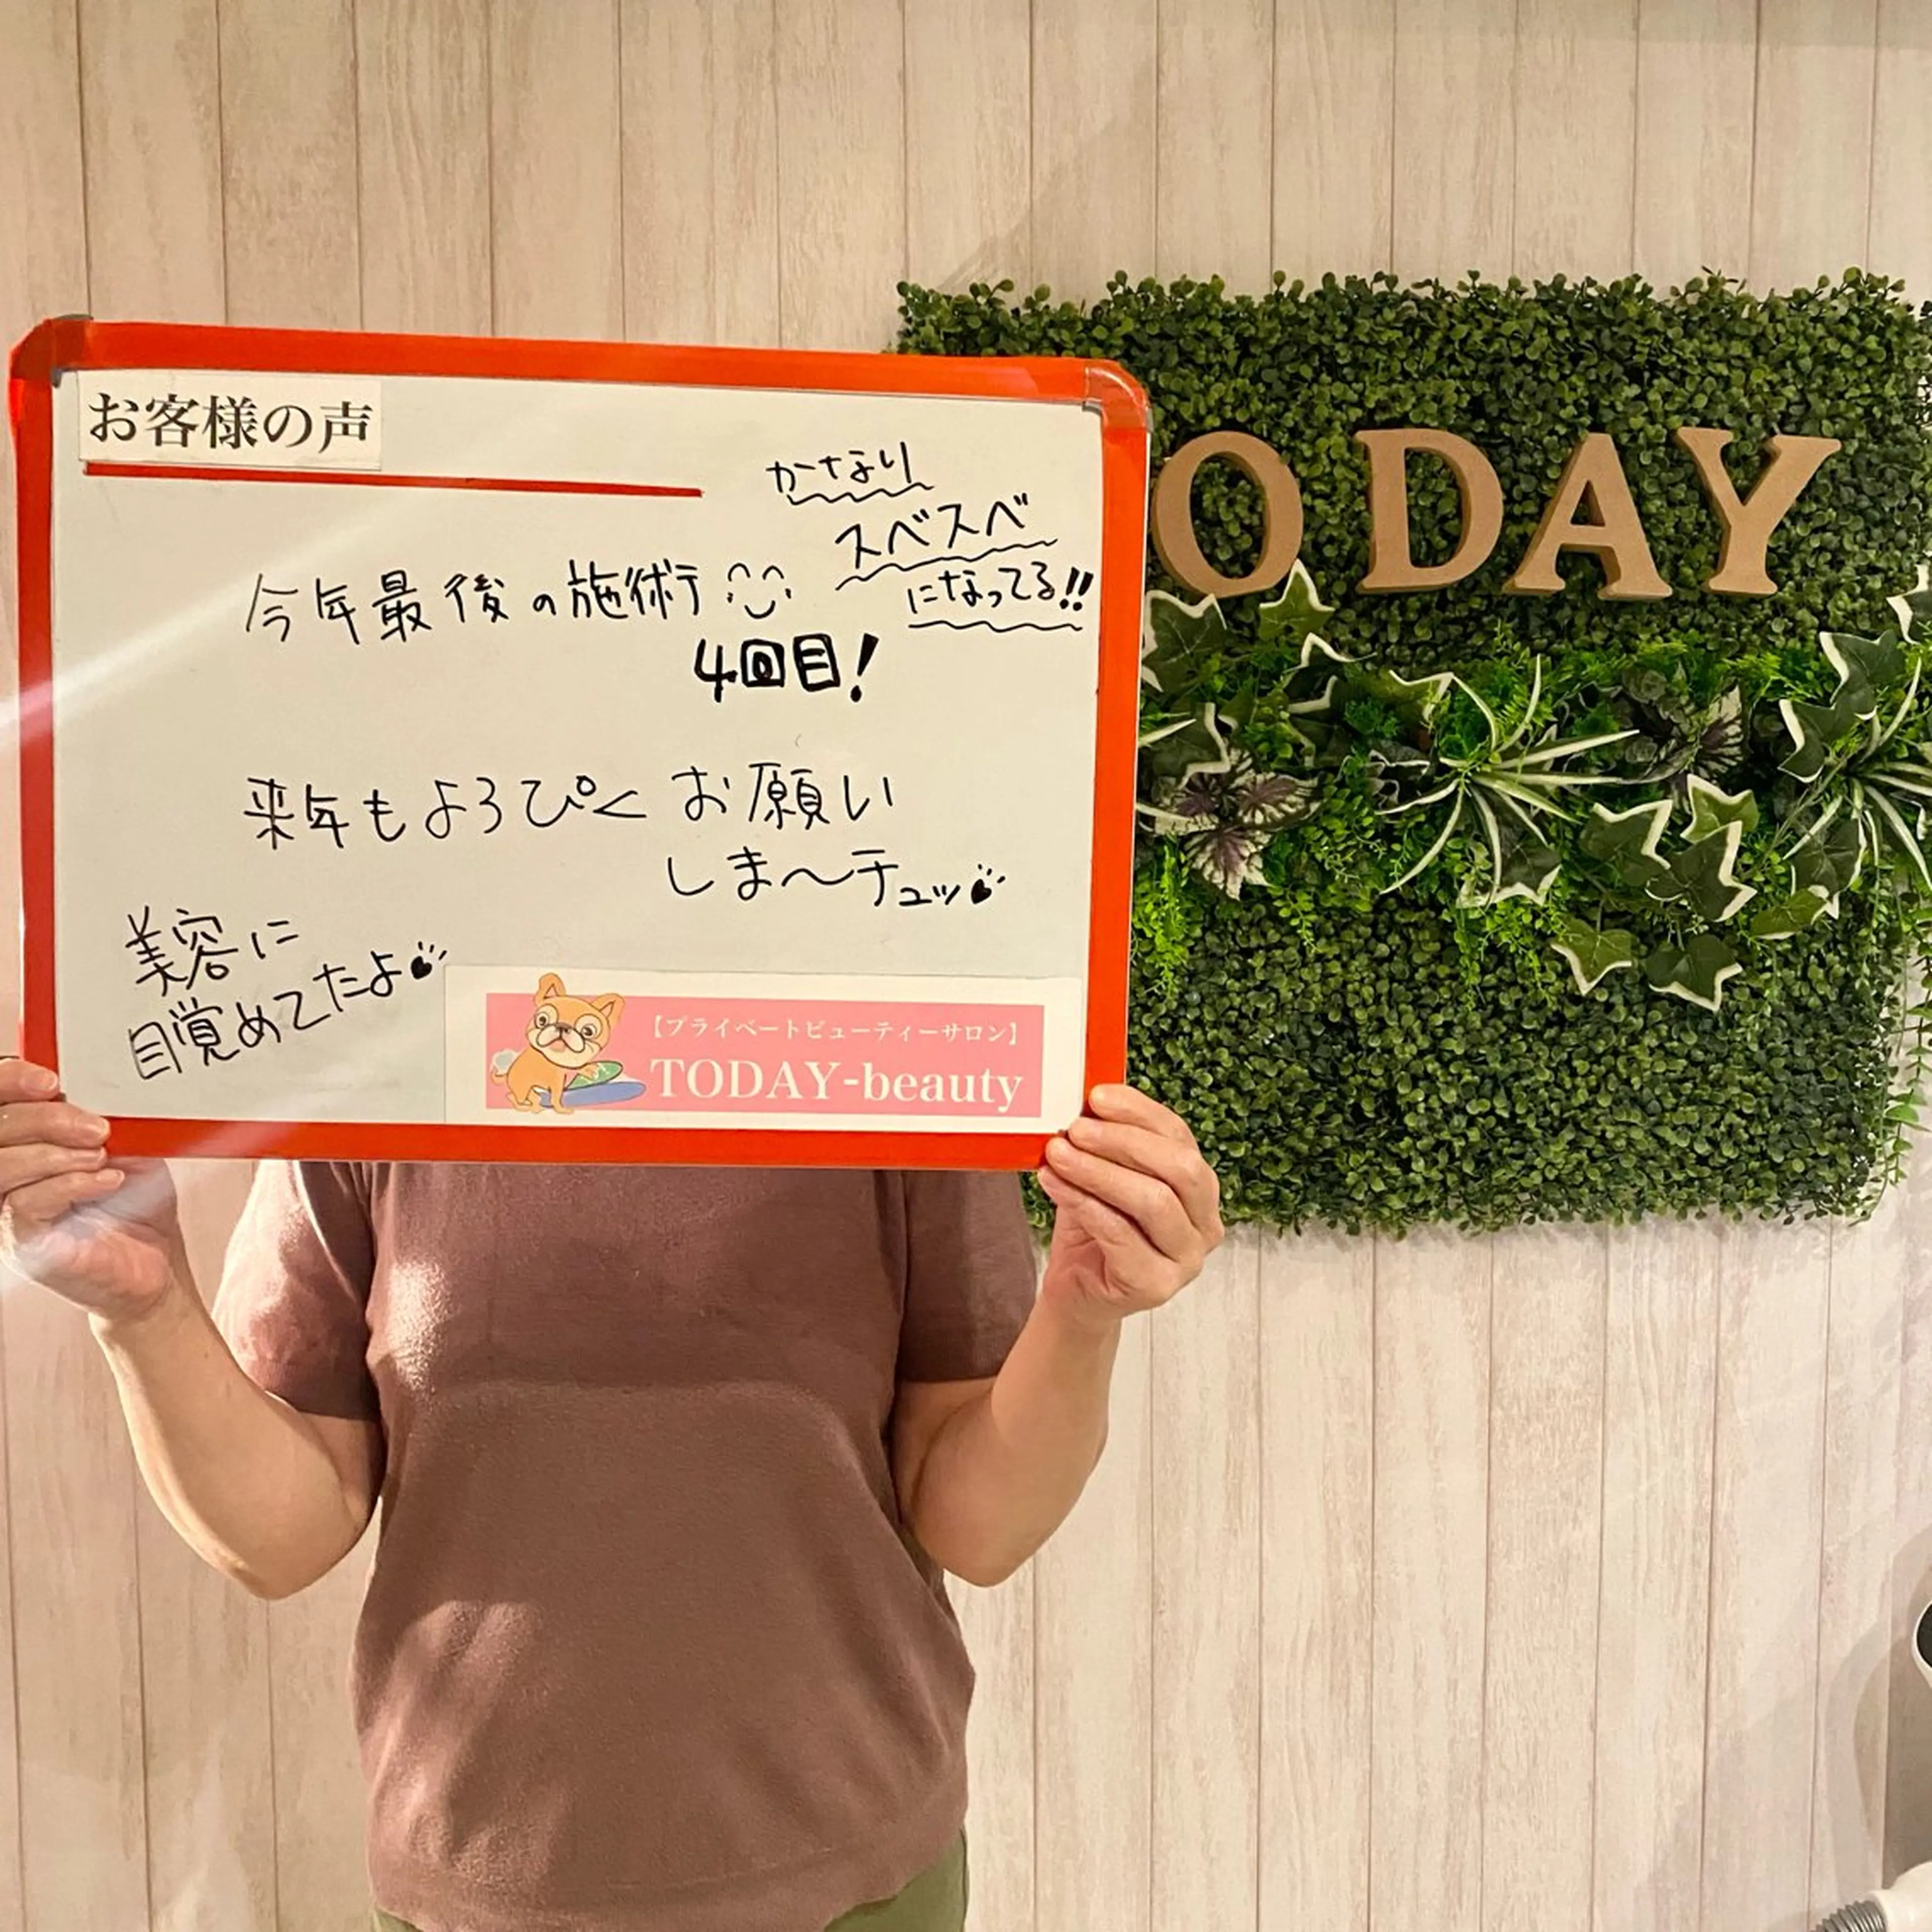 お客様の声
かなり
スベスベ
になってる!!
今年最後の施術
4回目!
来年もよろぴく お願い
しま〜チュッ
美容に
目覚めてたよ
【プライベートビューティーサロン】
TODAY-beauty
ODAY